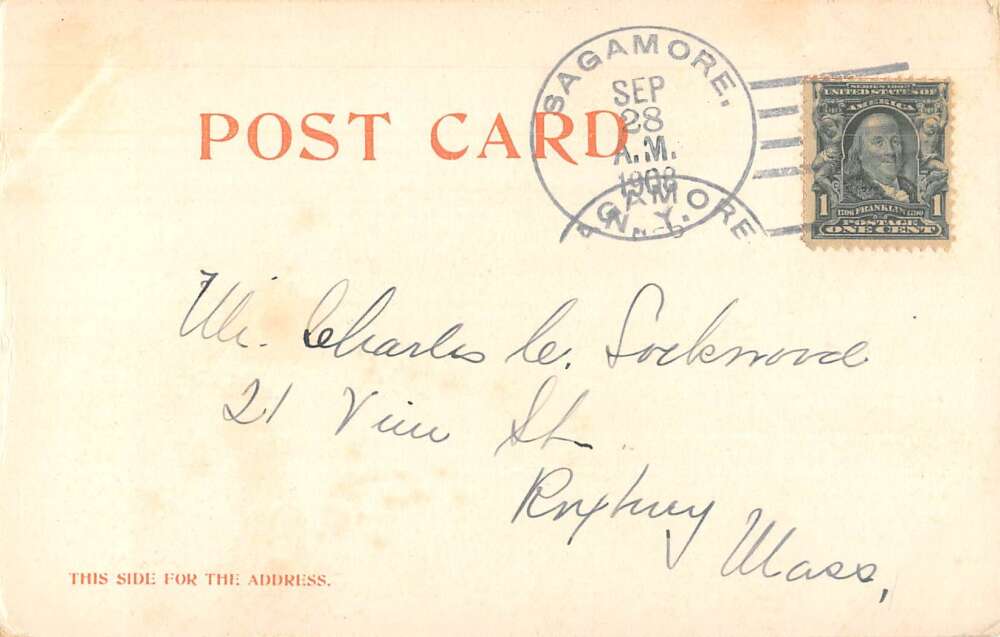 SAGAMORE,
SEP
28
A.M.
1908
N.Y.
AGAMORE
AM
SERIES 1902
UNITED STATES OF
AMERICA
1 1706 FRANKLIN 1790 1
POSTAGE
ONE CENT
POST CARD
Mr. Charles C. Lockwood
21 Vine St.
Roxbury
Mass,
THIS SIDE FOR THE ADDRESS.